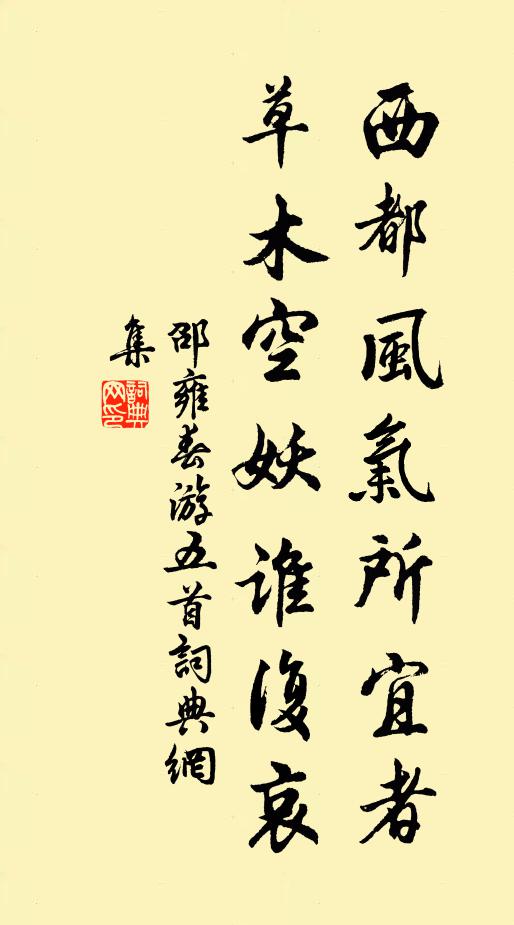 西都風氣所宜者
草木空妖誰復哀
邵雍春游五首詞典網
集
詞典
网印